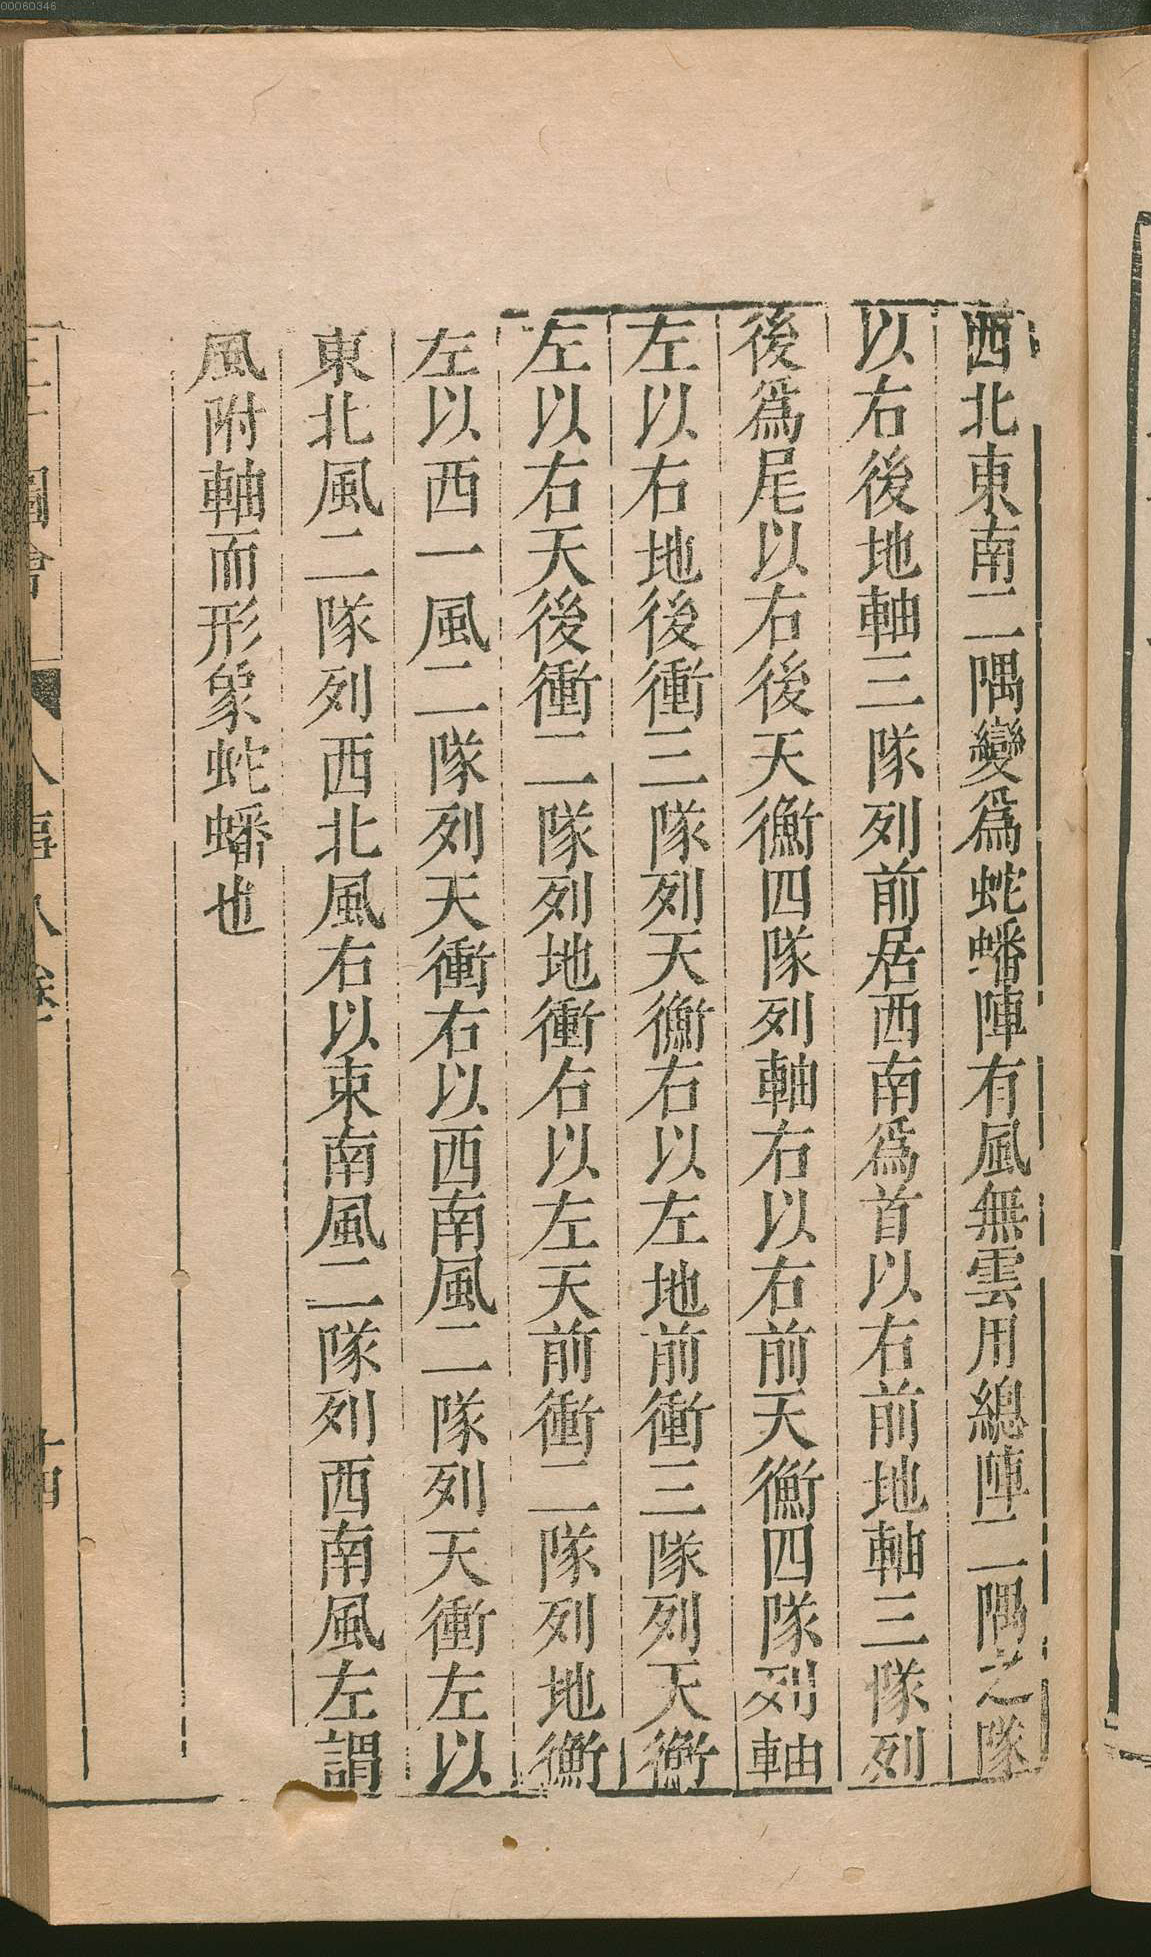 00060346
西北東南二隅變爲蛇蟠陣有風無雲用總陣二隅之隊
以右後地軸三隊列前居西南爲首以右前地軸三隊列
後爲尾以右後天衡四隊列軸右以右前天衡四隊列軸
左以右地後衝三隊列天衡右以左地前衝三隊列天衡
左以右天後衝二隊列地衝右以左天前衝二隊列地衡
左以西一風二隊列天衝右以西南風二隊列天衝左以
東北風二隊列西北風右以東南風二隊列西南風左謂
風附軸而形象蛇蟠也
圖會 人事八卷